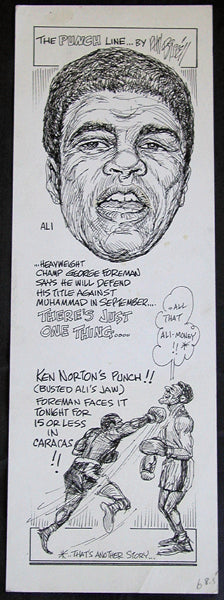 THE PUNCH LINE... BY
ALI
...HEAVYWEIGHT
CHAMP GEORGE FOREMAN
SAYS HE WILL DEFEND
HIS TITLE AGAINST
MUHAMMAD IN SEPTEMBER....
THERE'S JUST
ONE THING....
...ALL
THAT
ALI-MONEY
!!*
KEN NORTON'S PUNCH!!
(BUSTED ALI'S JAW)
FOREMAN FACES IT
TONIGHT FOR
15 OR LESS
IN
CARACAS*
*...THAT'S ANOTHER STORY...